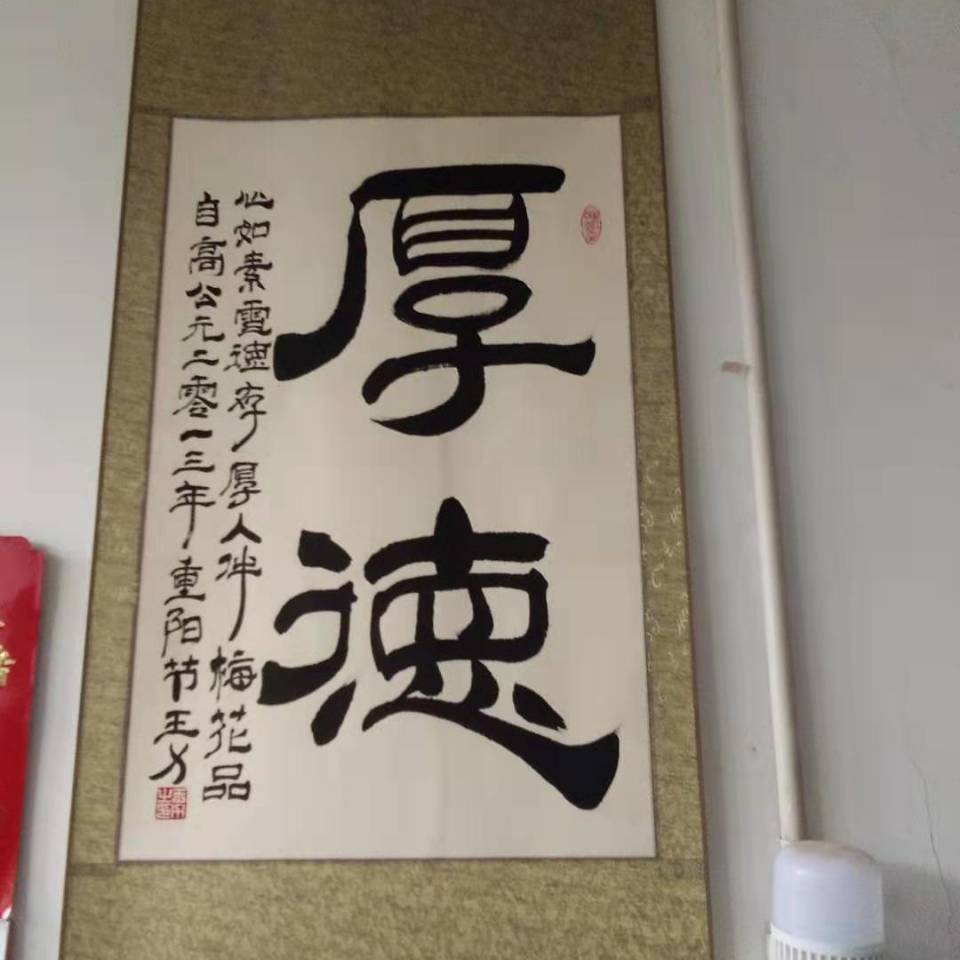 厚德
心如素雪德存厚人伴梅花品
自高公元二零一三年重阳节王